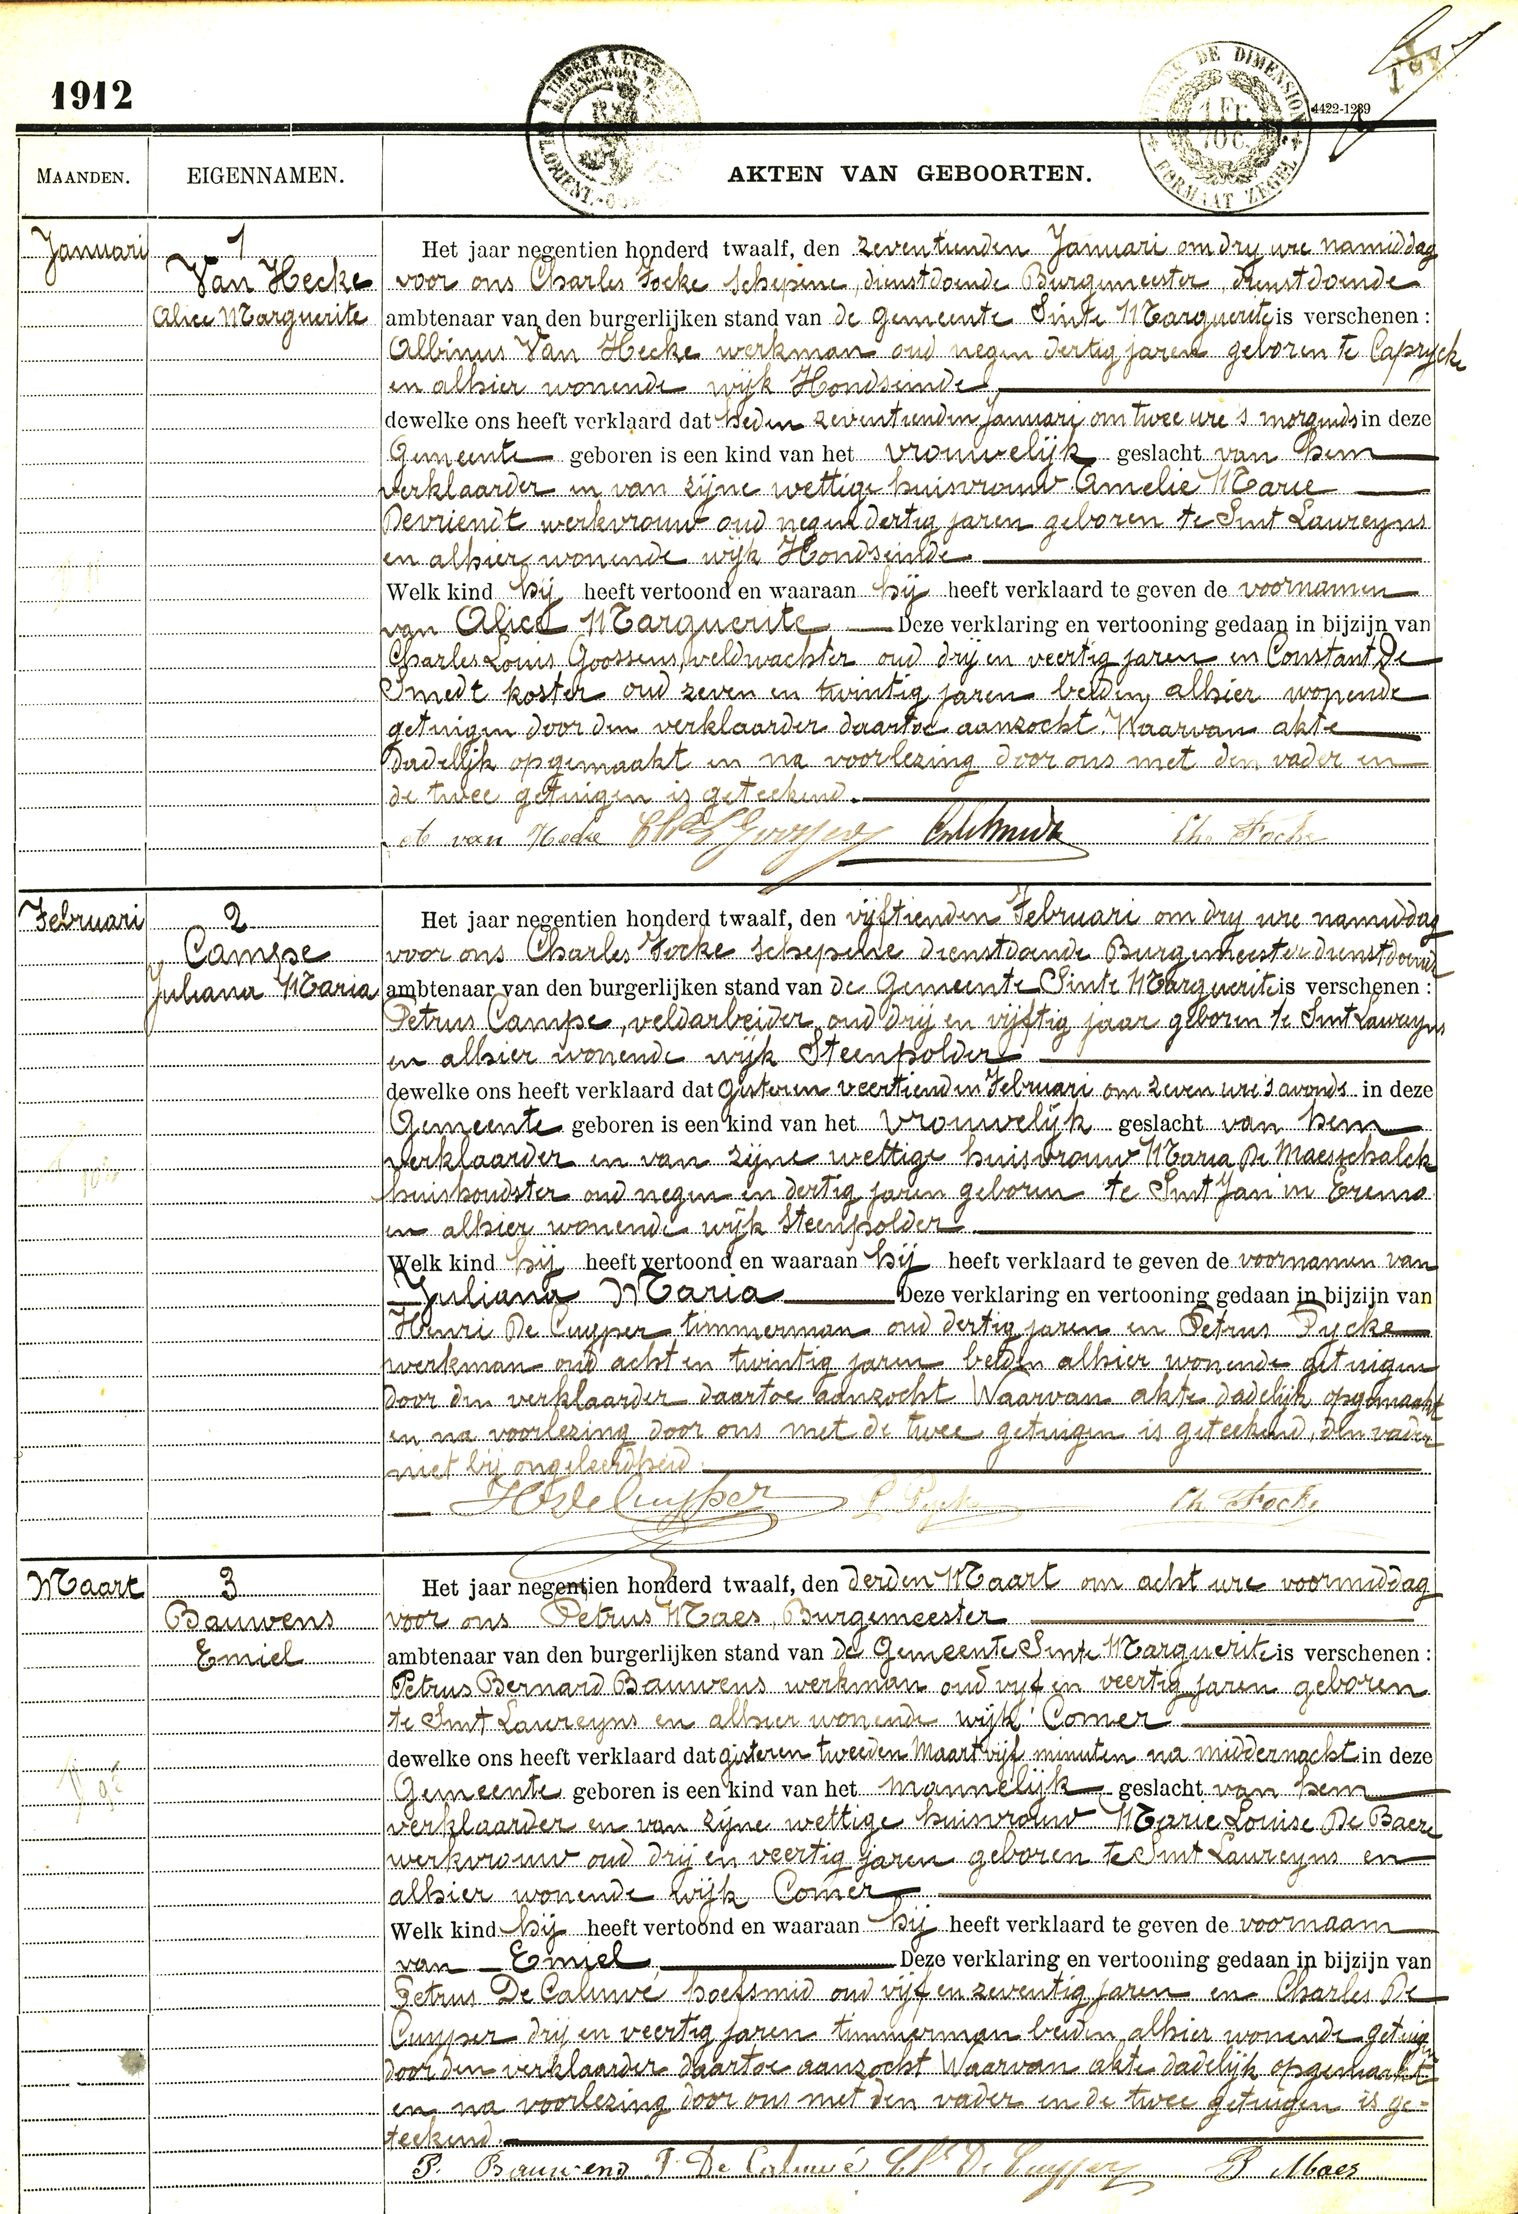 1912
4422-1239
TIMBRE DE DIMENSION
1 Fr.
70 C.
FORMAAT ZEGEL
MAANDEN.
EIGENNAMEN.
AKTEN VAN GEBOORTEN.
Januari
1
Van Hecke
Alice Marguerite
Het jaar negentien honderd twaalf, den zeventienden Januari om dry ure namiddag
voor ons Charles Focke schepene, dienstdoende Burgemeester, dienstdoende
ambtenaar van den burgerlijken stand van de gemeente Sinte Marguerite is verschenen :
Albinus Van Hecke werkman oud negen dertig jaren geboren te Caprycke
en alhier wonende wijk Hondseinde
dewelke ons heeft verklaard dat heden zeventienden Januari om twee ure 's morgends in deze
Gemeente geboren is een kind van het vrouwelijk geslacht van hem
verklaarder en van zijne wettige huisvrouw Amelie Marie
Devriendt werkvrouw oud negen dertig jaren geboren te Sint Laureyns
en alhier wonende wijk Hondseinde
Welk kind hij heeft vertoond en waaraan hij heeft verklaard te geven de voornamen
van Alice Marguerite Deze verklaring en vertooning gedaan in bijzijn van
Charles Louis Goossens, veldwachter oud drij en veertig jaren en Constant De
Smedt koster oud zeven en twintig jaren beiden alhier wonende
getuigen door den verklaarder daartoe aanzocht. Waarvan akte
dadelijk opgemaakt en na voorlezing door ons met den vader en
de twee getuigen is geteekend.
van Hecke Ch. Focke
Februari
2
Campe
Juliana Maria
Het jaar negentien honderd twaalf, den vijftienden Februari om dry ure namiddag
voor ons Charles Focke schepene dienstdoende Burgemeester dienstdoende
ambtenaar van den burgerlijken stand van de Gemeente Sinte Marguerite is verschenen :
Petrus Campe, veldarbeider oud drij en vijftig jaar geboren te Sint Laureyns
en alhier wonende wijk Steenpolder
dewelke ons heeft verklaard dat gisteren veertienden Februari om zeven ure 's avonds in deze
Gemeente geboren is een kind van het vrouwelijk geslacht van hem
verklaarder en van zijne wettige huisvrouw Maria De Maesschalck
huishoudster oud negen en dertig jaren geboren te Sint Jan in Eremo
en alhier wonende wijk Steenpolder
Welk kind hij heeft vertoond en waaraan hij heeft verklaard te geven de voornamen van
Juliana Maria Deze verklaring en vertooning gedaan in bijzijn van
Henri De Cuyper timmerman oud dertig jaren en Petrus Pycke
werkman oud acht en twintig jaren beiden alhier wonende getuigen
door den verklaarder daartoe aanzocht Waarvan akte dadelijk opgemaakt
en na voorlezing door ons met de twee getuigen is geteekend, den vader
niet bij ongeleerdheid.
De Cuyper P Pycke Ch Focke
Maart
3
Bauwens
Emiel
Het jaar negentien honderd twaalf, den derden Maart om acht ure voormiddag
voor ons Petrus Maes, Burgemeester
ambtenaar van den burgerlijken stand van de Gemeente Sinte Marguerite is verschenen :
Petrus Bernard Bauwens werkman oud vyf en veertig jaren geboren
te Sint Laureyns en alhier wonende wijk Comer
dewelke ons heeft verklaard dat gisteren tweeden Maart vijf minuten na middernacht in deze
Gemeente geboren is een kind van het mannelijk geslacht van hem
verklaarder en van zijne wettige huisvrouw Marie Louise De Baere
werkvrouw oud drij en veertig jaren geboren te Sint Laureyns en
alhier wonende wijk Comer
Welk kind hij heeft vertoond en waaraan hij heeft verklaard te geven de voornaam
van Emiel Deze verklaring en vertooning gedaan in bijzijn van
Petrus De Caluwé hoefsmid oud vijf en zeventig jaren en Charles De
Cuyper drij en veertig jaren timmerman beiden alhier wonende getuigen
door den verklaarder daartoe aanzocht Waarvan akte dadelijk opgemaakt
en na voorlezing door ons met den vader en de twee getuigen is ge-
teekend.
P. Bauwens P. De Caluwé Chs De Cuyper P Maes